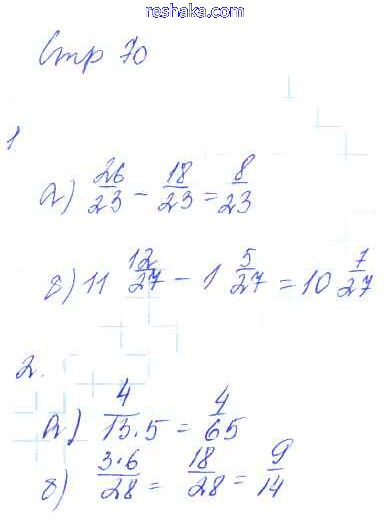 reshaka.com
Стр 70
1
а) 26/23 - 18/23 = 8/23
б) 11 12/27 - 1 5/27 = 10 7/27
2.
а) 4/13·5 = 4/65
б) 3·6/28 = 18/28 = 9/14